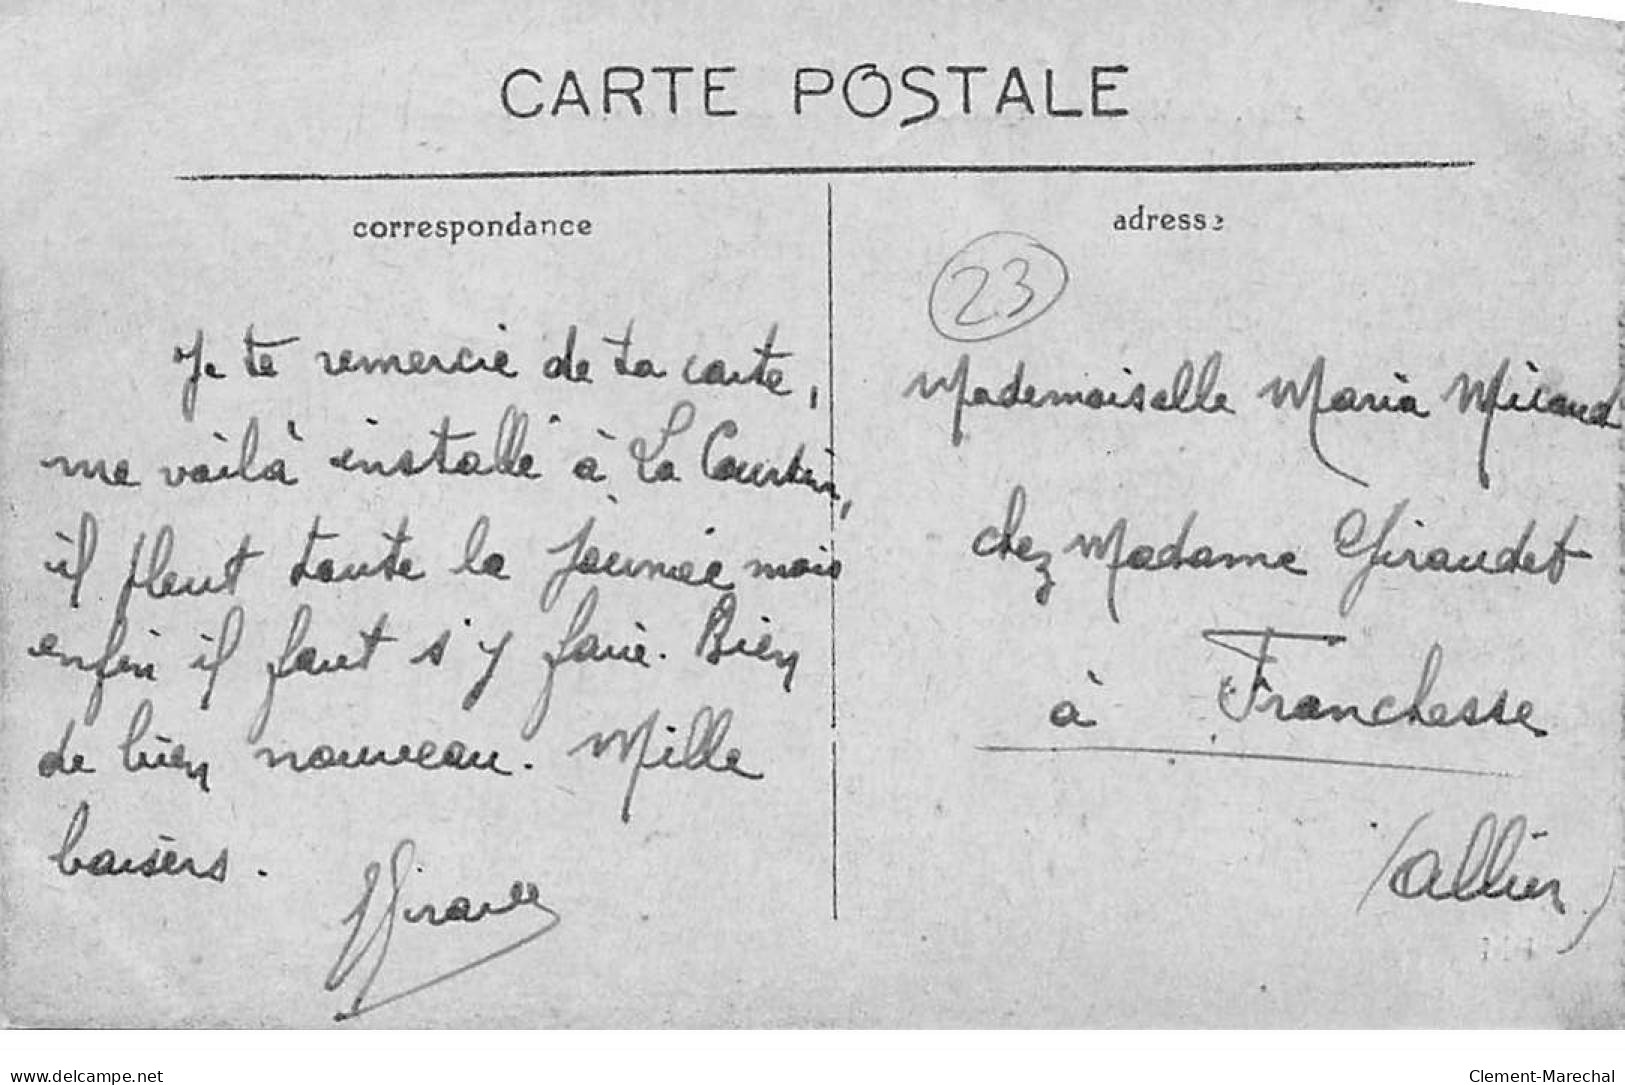 CARTE POSTALE
correspondance
Je te remercie de ta carte,
me voilà installé à La Courtine,
il pleut toute la journée mais
enfin il faut s'y faire. Rien
de bien nouveau. Mille
baisers.
adresse
23
Mademoiselle Maria Micaud
chez Madame Giraudet
à Franchesse
(Allier)
www.delcampe.net
Clement-Marechal